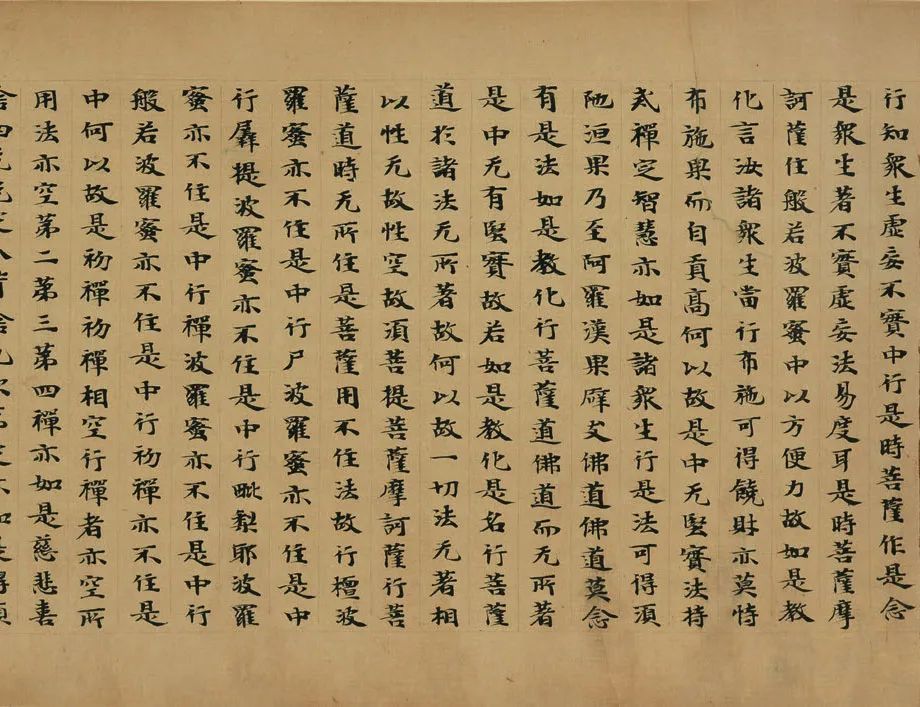 行知眾生虛妄不實中行是時菩薩作是念
是眾生著不實虛妄法易度耳是時菩薩摩
訶薩住般若波羅蜜中以方便力故如是教
化言汝諸眾生當行布施可得饒財亦莫恃
布施果而自貢高何以故是中无堅實法持
戒禪定智慧亦如是諸眾生行是法可得須
陁洹果乃至阿羅漢果辟支佛道佛道莫念
有是法如是教化行菩薩道佛道而无所著
是中无有堅實故若如是教化是名行菩薩
道於諸法无所著故何以故一切法无著相
以性无故性空故須菩提菩薩摩訶薩行菩
薩道時无所住是菩薩用不住法故行檀波
羅蜜亦不住是中行尸波羅蜜亦不住是中
行羼提波羅蜜亦不住是中行毗梨耶波羅
蜜亦不住是中行禪波羅蜜亦不住是中行
般若波羅蜜亦不住是中行初禪亦不住是
中何以故是初禪初禪相空行禪者亦空所
用法亦空第二第三第四禪亦如是慈悲喜